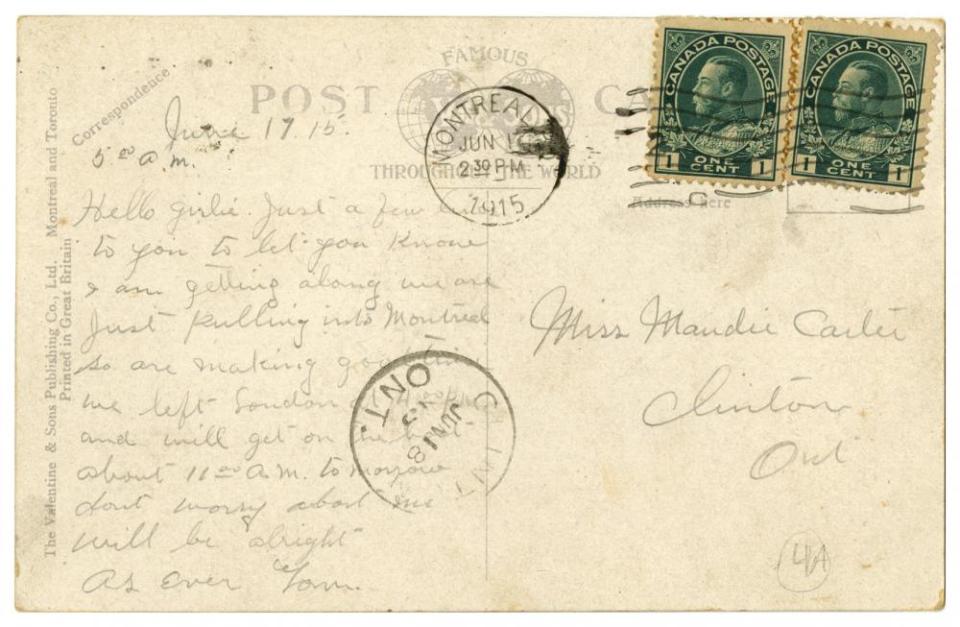 The Valentine & Sons Publishing Co., Ltd. Montreal and Toronto
Printed in Great Britain
Correspondence
POST
FAMOUS
THROUGHOUT THE WORLD
MONTREAL
JUN
2 30 PM
1915
CANADA POSTAGE
1 ONE CENT 1
CANADA POSTAGE
1 ONE CENT 1
Address here
June 17. 15.
5 00 a m.
Hello girlie. Just a few
to you to let you know
I am getting along we are
just pulling into Montreal
so are making good time
we left London at 4 00 PM
and will get on the boat
about 11 00 A.M. to morrow
dont worry about me
will be alright
As Ever Tom.
Miss Maudie Carter
Clinton
Ont
CLINTON
ONT.
JUN 18
15
4A